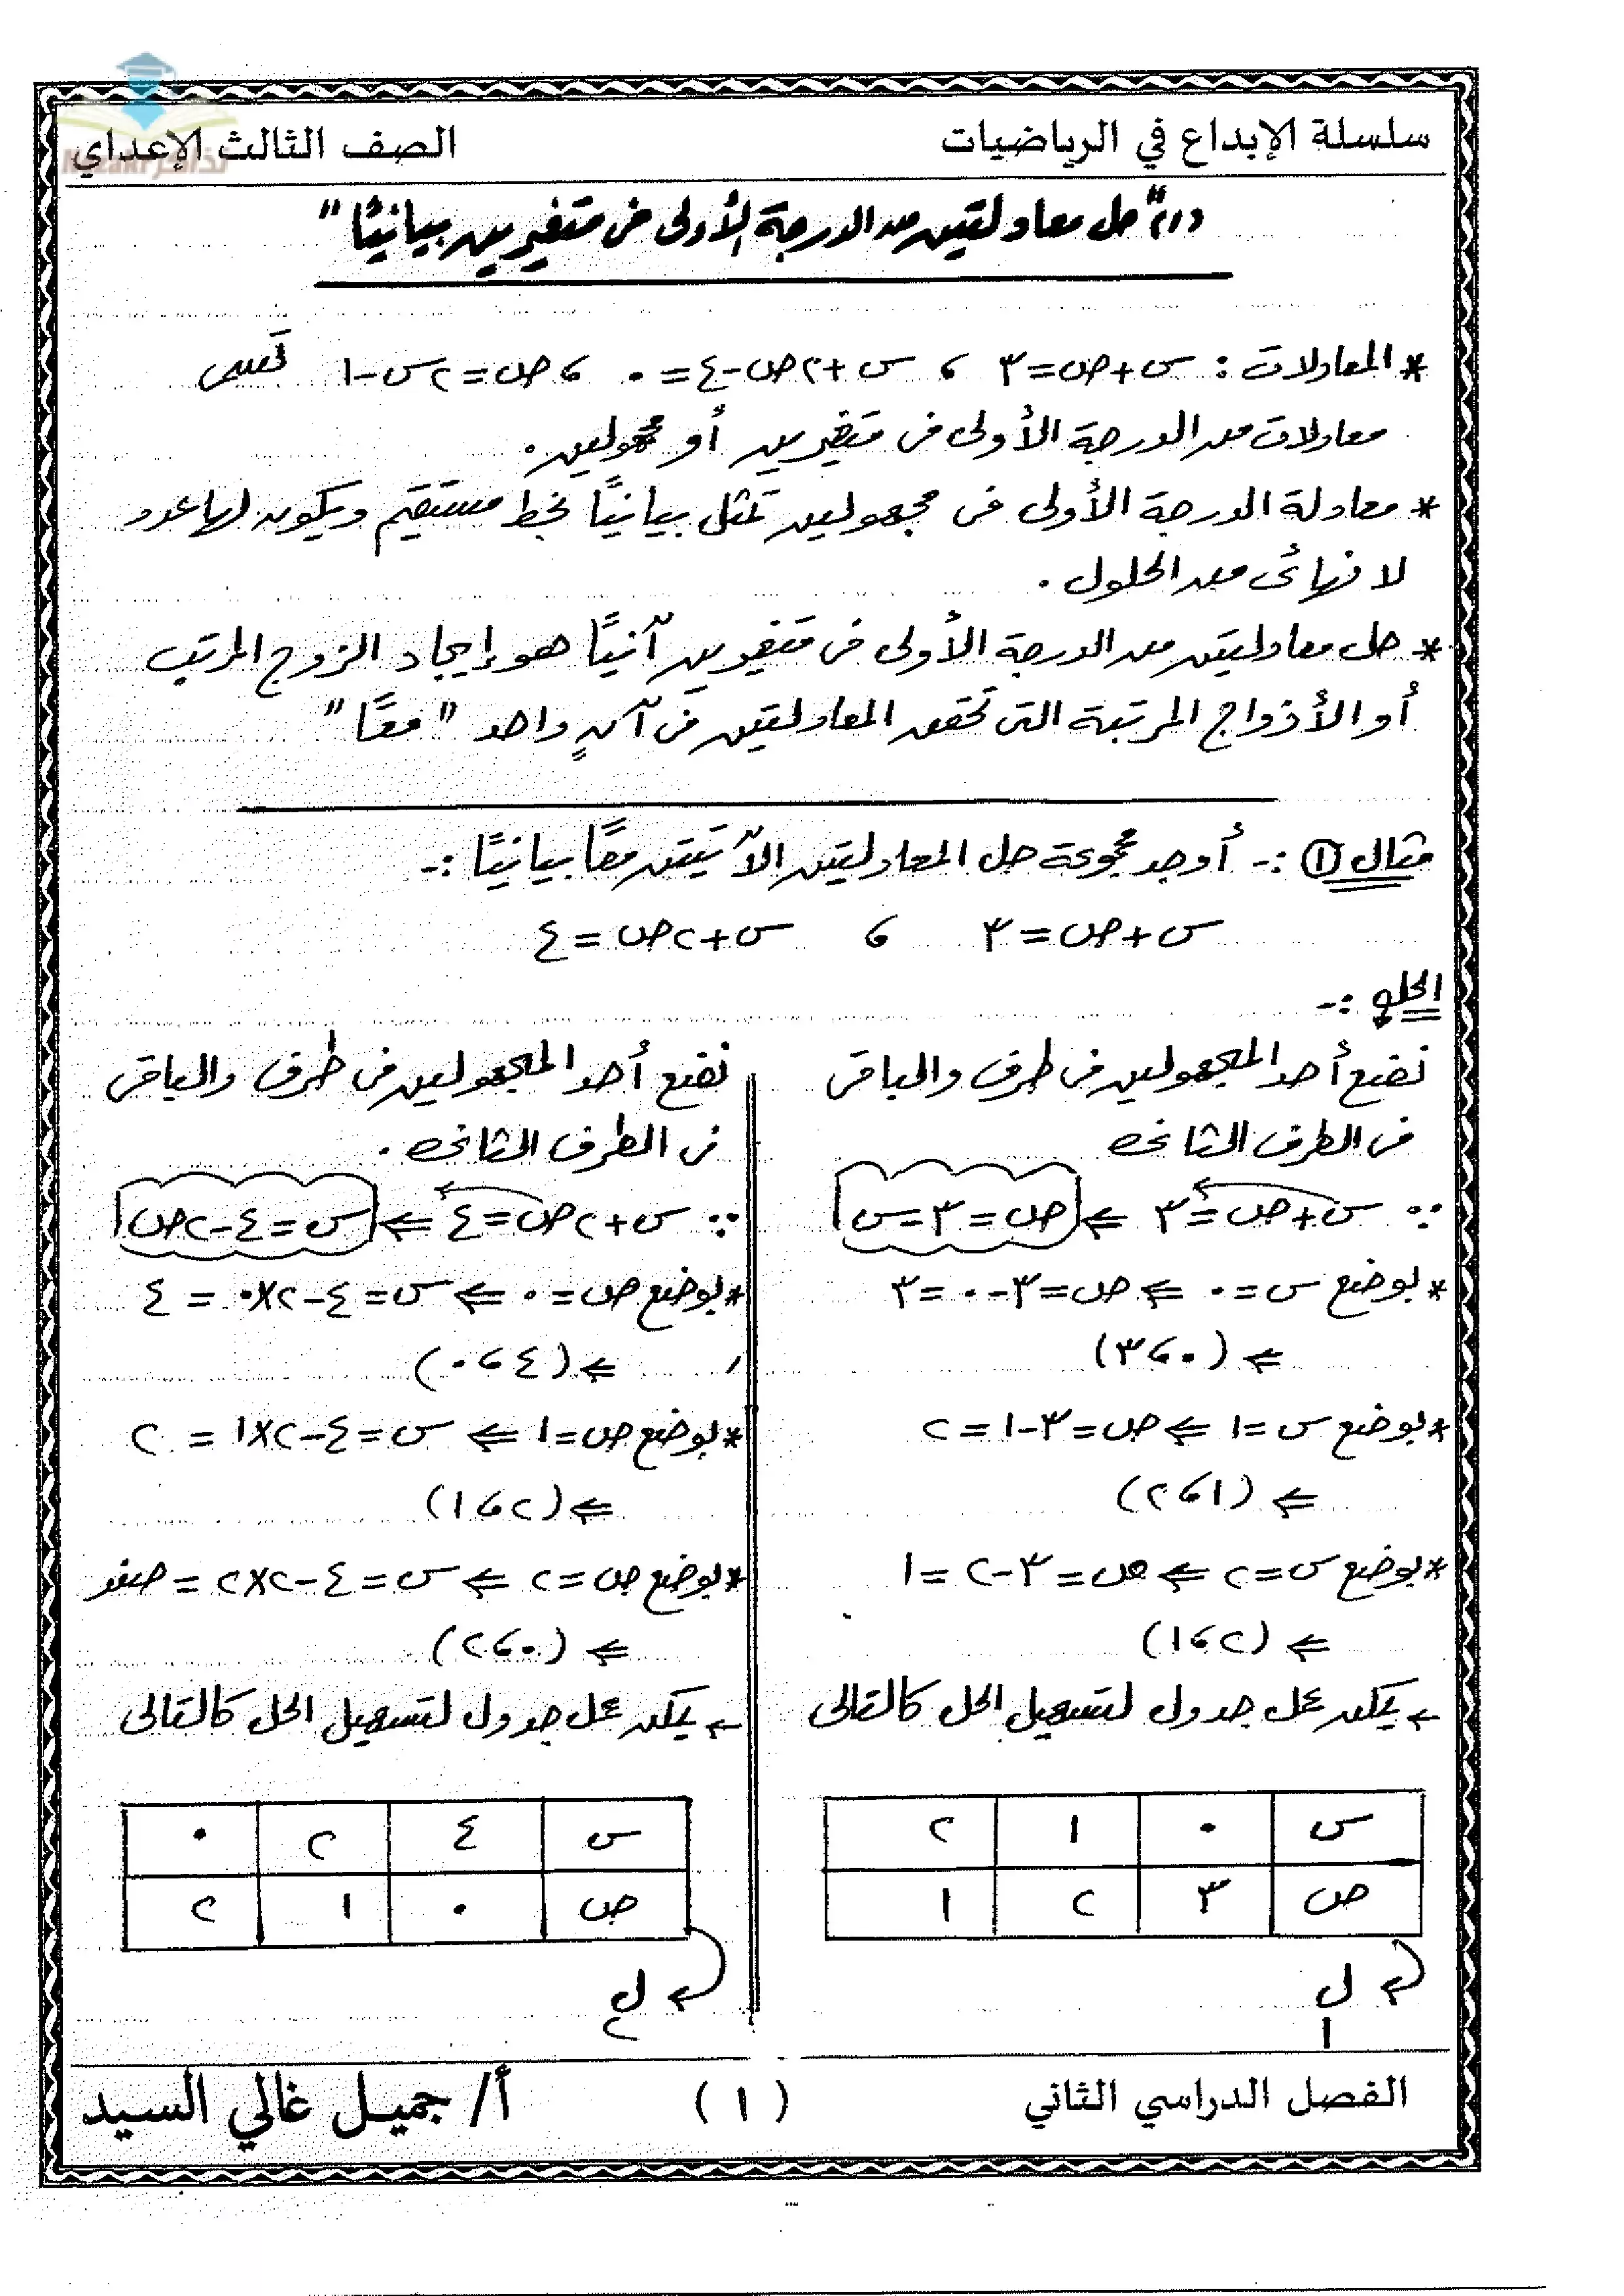 سلسلة الإبداع في الرياضيات
الصف الثالث الإعداي
(١) "حل معادلتين من الدرجة الأولى فى متغيرين بيانيًا"
* المعادلات : س + ص = ٣ ، س + ٢ص - ٤ = ٠ ، ص = ٢س - ١ تسمى
معادلات من الدرجة الأولى فى متغيرين أو مجهولين .
* معادلة الدرجة الأولى فى مجهولين تمثل بيانيًا بخط مستقيم ويكون لها عدد
لا نهائى من الحلول .
* حل معادلتين من الدرجة الأولى فى متغيرين آنيًا هو إيجاد الزوج المرتب
أو الأزواج المرتبة التى تحقق المعادلتين فى آنٍ واحد "معًا"
مثال (١) :- أوجد مجموعة حل المعادلتين الآتيتين معًا بيانيًا :-
س + ص = ٣ ، س + ٢ص = ٤
الحل :-
نضع أحد المجهولين فى طرف والباقى
فى الطرف الثانى
∵ س + ص = ٣ ⇐ ص = ٣ - س
* بوضع س = ٠ ⇐ ص = ٣ - ٠ = ٣
⇐ (٠ ، ٣)
* بوضع س = ١ ⇐ ص = ٣ - ١ = ٢
⇐ (١ ، ٢)
* بوضع س = ٢ ⇐ ص = ٣ - ٢ = ١
⇐ (٢ ، ١)
← يمكن عمل جدول لتسهيل الحل كالتالى
س ٠ ١ ٢
ص ٣ ٢ ١
ل١
نضع أحد المجهولين فى طرف والباقى
فى الطرف الثانى .
∵ س + ٢ص = ٤ ⇐ س = ٤ - ٢ص
* بوضع ص = ٠ ⇐ س = ٤ - ٢×٠ = ٤
⇐ (٤ ، ٠)
* بوضع ص = ١ ⇐ س = ٤ - ٢×١ = ٢
⇐ (٢ ، ١)
* بوضع ص = ٢ ⇐ س = ٤ - ٢×٢ = صفر
⇐ (٠ ، ٢)
← يمكن عمل جدول لتسهيل الحل كالتالى
س ٤ ٢ ٠
ص ٠ ١ ٢
ل٢
الفصل الدراسي الثاني
( ١ )
أ/ جميل غالي السيد